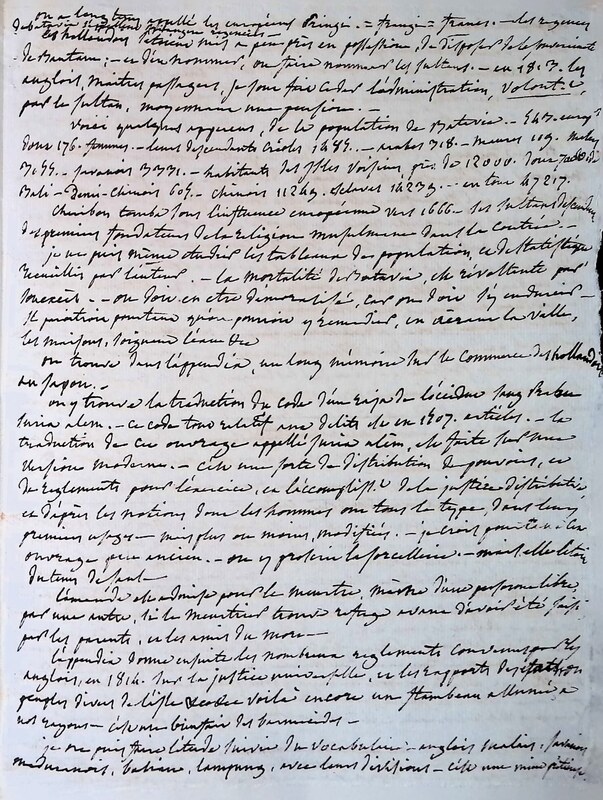 on a longtems appellé les européens Pringi. = frangi = francs. - les regences
de Batavia
les hollandois s'étoient mis à peu près en possession, de disposer de la souveraineté
de Bantam; - c'est à dire nommer, ou faire nommer les sultans. - en 1813. les
anglois, maîtres passagers, se sont fait céder l'administration,
par le sultan, moyennant une pension. -
Voici quelques apperçus, de la population de Batavia. - 543. europ.
dont 176. femmes. - leurs descendants créoles 1485. - arabes 318. - maures 119. malays
3155. javanois 3331. - habitants des isles voisines, près de 12000. dont 7720 de
Bali - Demi-chinois 605. - chinois 11249. esclaves 14239. - en tout 47217.
Cheribon tomba sous l'influence européenne vers 1666. - ses sultans descendent
des premiers fondateurs de la religion musulmane dans la contrée. -
je ne puis même étudier les tableaux de population, et de statistique
recueillis par l'auteur. - la mortalité de Batavia, est révoltante par
son excès. - on doit en être démoralisé, car on doit s'y endurcir -
il paroîtroit pourtant qu'on pourroit y remédier, en aérant la ville,
les maisons, soigner l'eau &c
on trouve dans l'appendix, un long mémoire sur le commerce des hollandois
au Japon. -
on y trouve la traduction du code d'un raja de
suria alem. - ce code tout relatif aux délits est en 1507. articles. - la
traduction de cet ouvrage appellé suria alem, est faite sur une
version moderne. - c'est une sorte de distribution de pouvoirs, et
de reglements pour l'exercice, et l'accomplisst de la justice distributive,
et d'après les notions dont les hommes ont tous le type, dans leurs
premiers usages - mais plus ou moins, modifiés. - je crois pourtant cet
ouvrage peu ancien. - on y proscrit la sorcellerie. -
du tems de
l'amende est admise pour le meurtre, même d'une personne libre
par une autre, si le meurtrier trouve refuge avant d'avoir été saisi
par les parents, et les amis du mort -
l'appendix donne ensuite les nombreux reglements convenus par les
anglois, en 1814. sur la justice universelle, et les rapports des états, ou
peuples divers de l'isle voilà encore un flambeau allumé à
nos rayons - c'est un bienfait des
je ne puis faire l'étude suivie du vocabulaire - anglois malais, javanois
madurois, balian, lampung, avec leurs divisions - c'est une mine précieuse